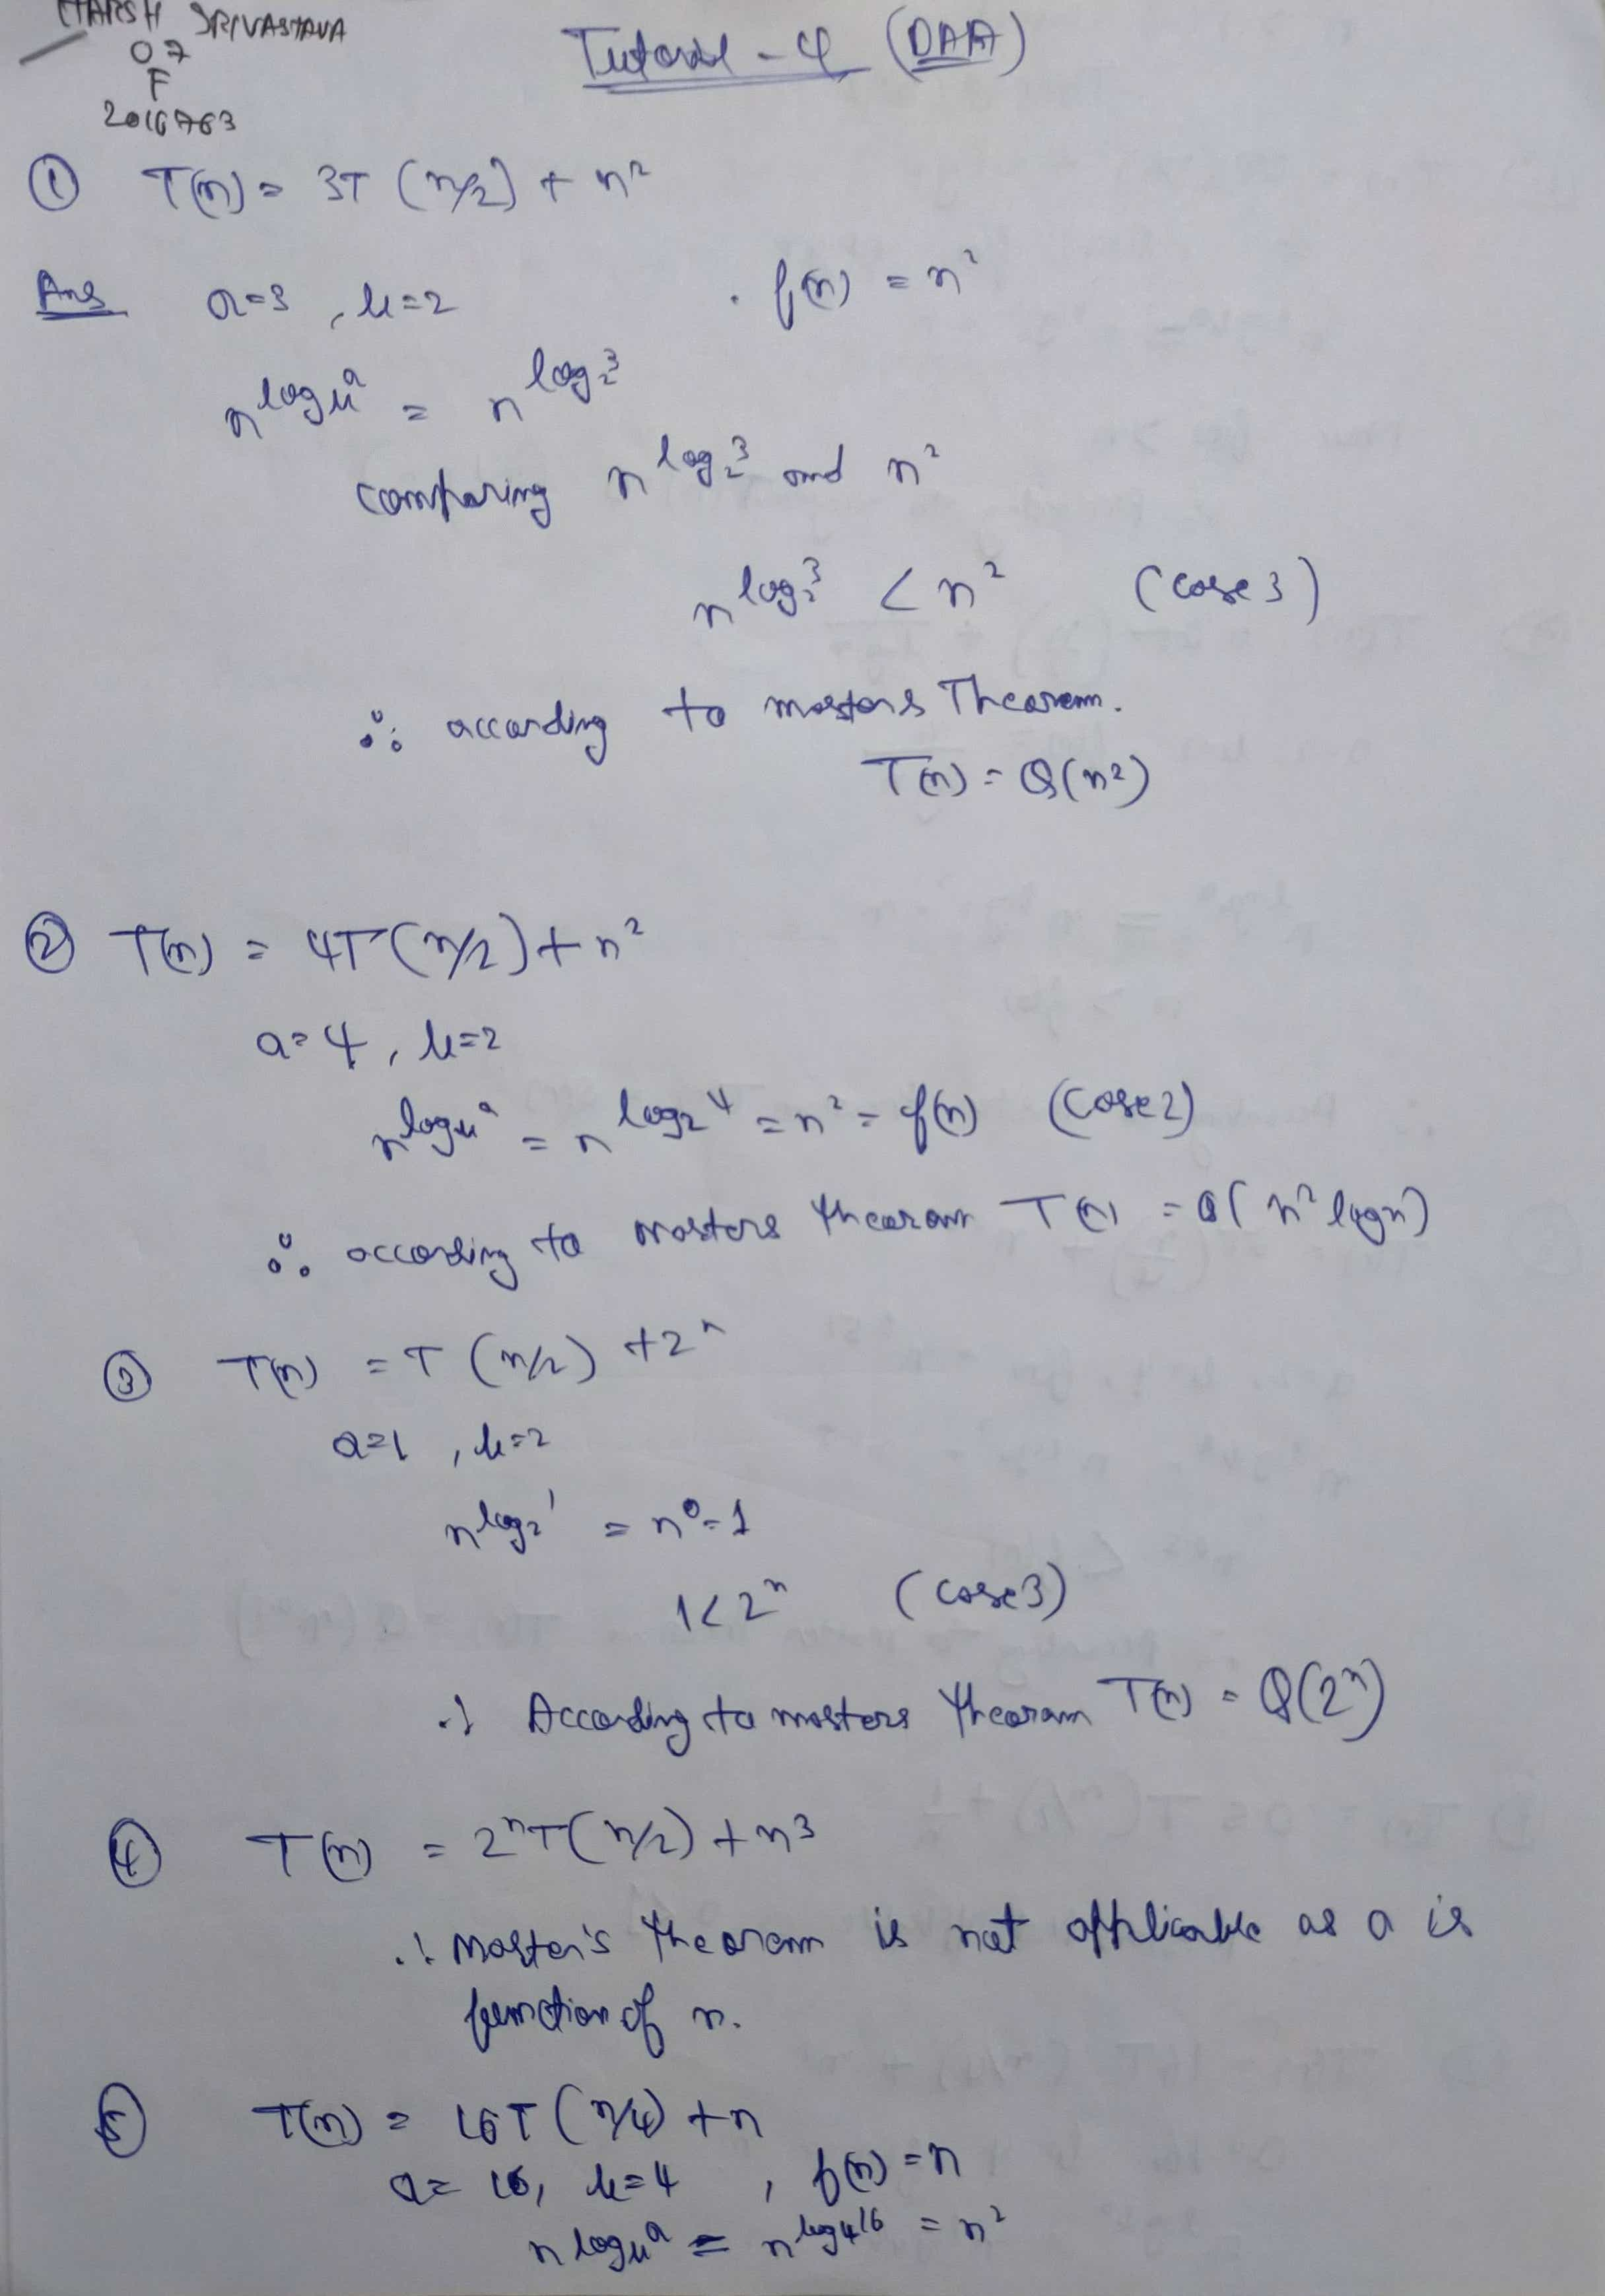 HARSH SRIVASTAVA
07
F
2016763
Tutorial - 4 (DAA)
① T(n) = 3T (n/2) + n²
Ans a=3 , b=2 . f(n) = n²
n^log_b^a = n^log_2^3
comparing n^log_2^3 and n²
n^log_2^3 < n² (case 3)
∴ according to masters Theorem.
T(n) = θ(n²)
② T(n) = 4T (n/2) + n²
a=4 , b=2
n^log_b^a = n^log_2^4 = n² = f(n) (case 2)
∴ according to masters theorem T(n) = θ( n² log n)
③ T(n) = T (n/2) + 2^n
a=1 , b=2
n^log_2^1 = n⁰ = 1
1 < 2^n (case 3)
∴ According to masters theoram T(n) = θ(2^n)
④ T(n) = 2^n T(n/2) + n³
∴ Master's theorem is not applicable as a is
function of n.
⑤ T(n) = 16T (n/4) + n
a = 16, b=4 , f(n) = n
n^log_b^a = n^log_4^16 = n²